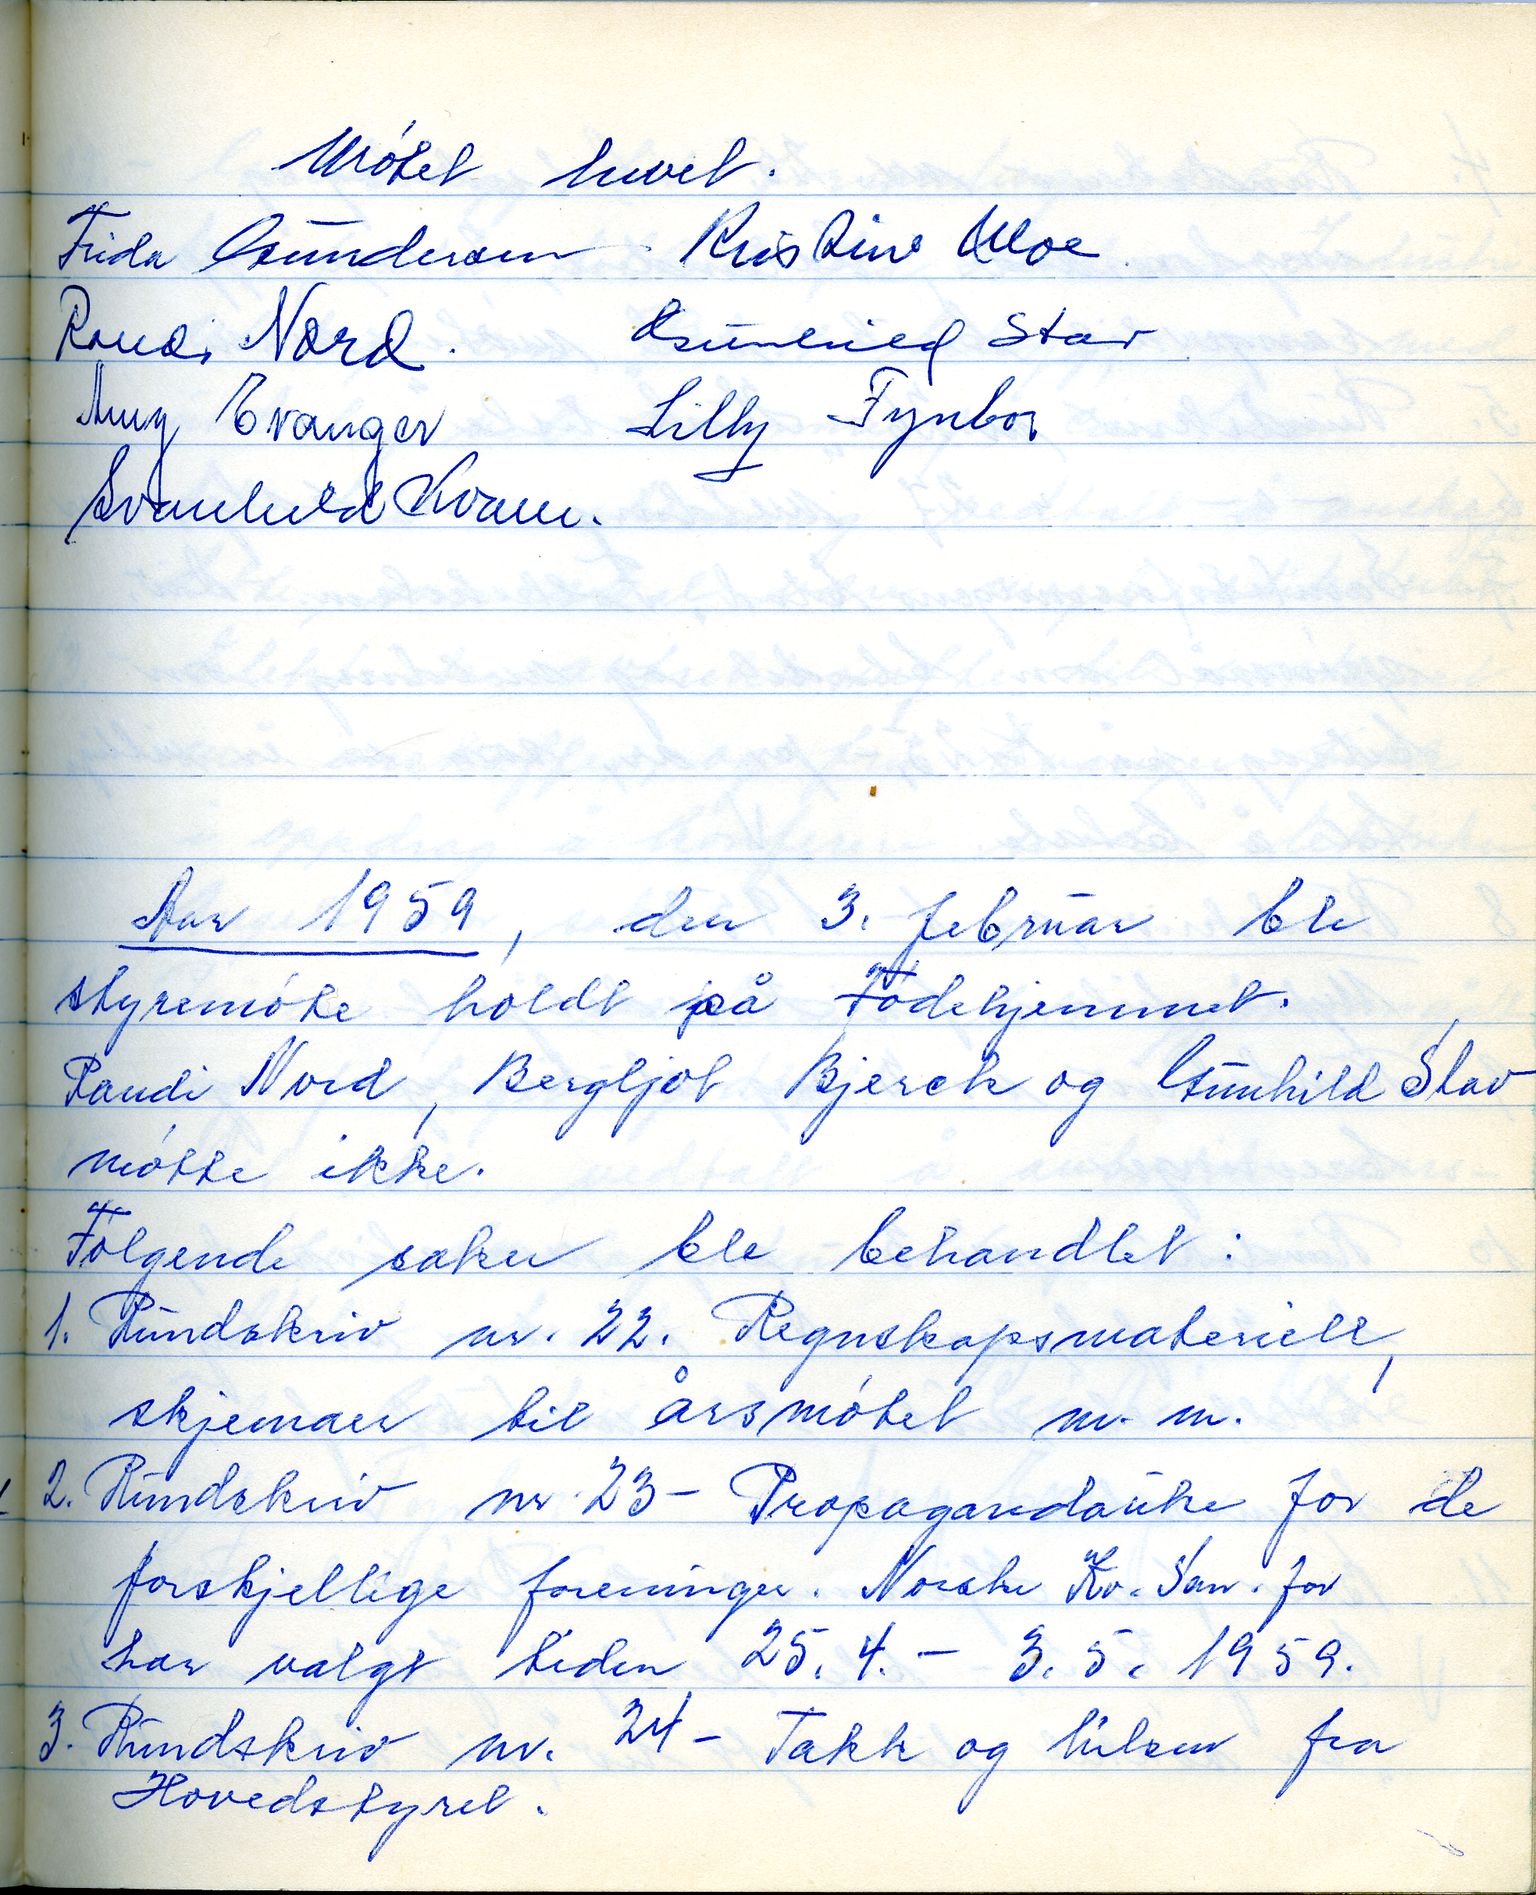 Møtet hevet.
Frida Gundersen Kristine Moe
Randi Nord. Gunhild Stav
Amy Evanger Lilly Fynbor
Svanhild Kvam.
Aar 1959, den 3. februar ble
styremøte holdt på Fødehjemmet.
Randi Nord, Bergljot Bjerck og Gunhild Stav
møtte ikke.
Følgende saker ble behandlet:
1. Rundskriv nr. 22. Regnskapsmateriell,
skjemaer til årsmøtet m. m.
2. Rundskriv nr. 23 - Propagandauke for de
forskjellige foreninger. Norske Kv. San. for
har valgt tiden 25. 4. - 3. 5. 1959.
3. Rundskriv nr. 24 - Takk og hilsen fra
Hovedstyret.